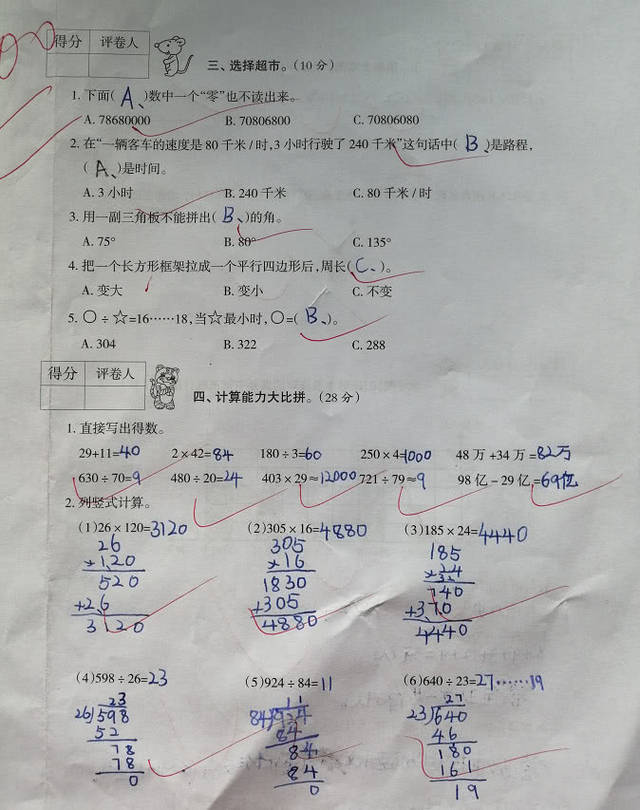 得分 评卷人
三、选择超市。(10分)
1. 下面( A、)数中一个“零”也不读出来。
A. 78680000 B. 70806800 C. 70806080
2. 在“一辆客车的速度是80千米/时,3小时行驶了240千米”这句话中( B、)是路程,
( A、)是时间。
A. 3小时 B. 240千米 C. 80千米/时
3. 用一副三角板不能拼出( B、)的角。
A. 75° B. 80° C. 135°
4. 把一个长方形框架拉成一个平行四边形后,周长( C、)。
A. 变大 B. 变小 C. 不变
5. ○÷☆=16……18,当☆最小时,○=( B、)。
A. 304 B. 322 C. 288
得分 评卷人
四、计算能力大比拼。(28分)
1. 直接写出得数。
29+11=40 2×42=84 180÷3=60 250×4=1000 48万+34万=82万
630÷70=9 480÷20=24 403×29≈12000 721÷79≈9 98亿-29亿=69亿
2. 列竖式计算。
(1)26×120=3120 (2)305×16=4880 (3)185×24=4440
26 305 185
×120 ×16 ×24
520 1830 740
+26 +305 +370
3120 4880 4440
(4)598÷26=23 (5)924÷84=11 (6)640÷23=27……19
23 11 27
26)598 84)924 23)640
52 84 46
78 84 180
78 84 161
0 0 19